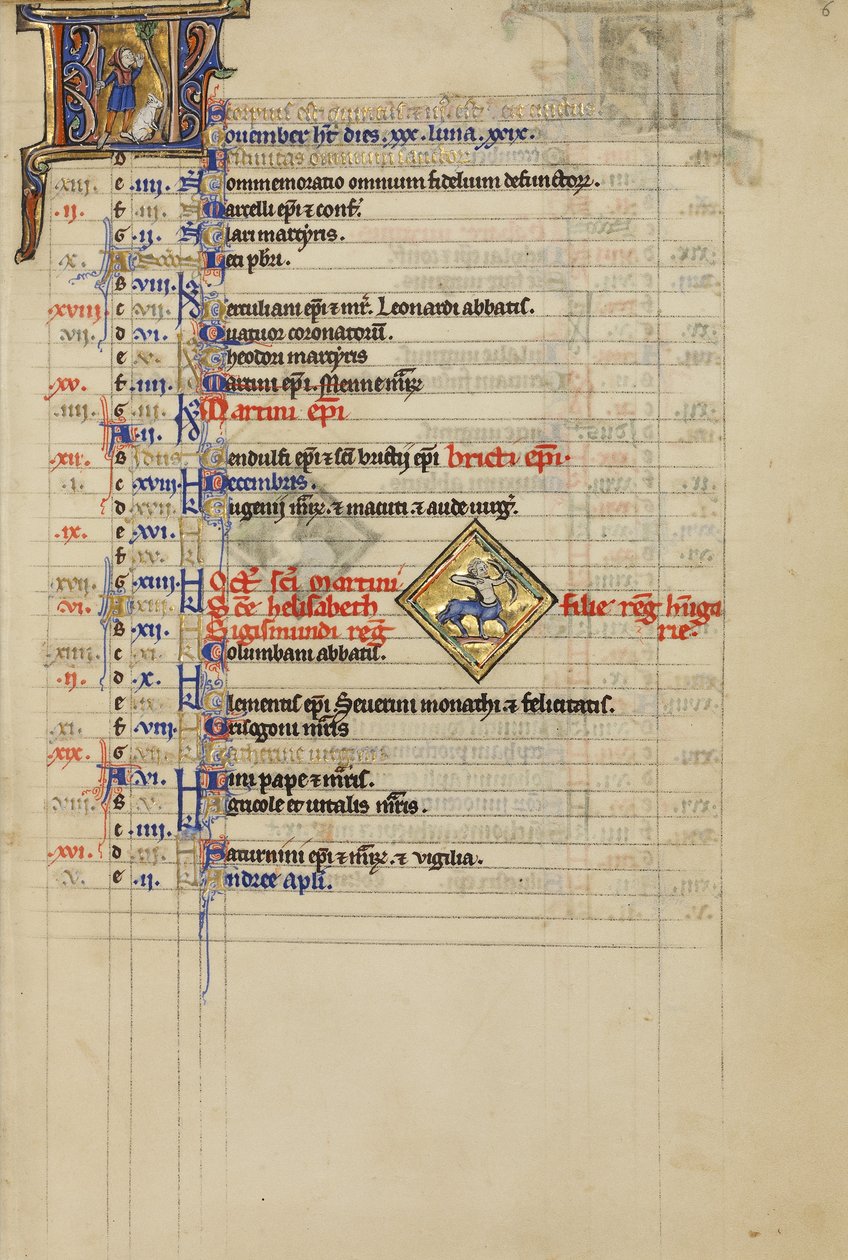 6
Scorpius est quintus
Nouember ht dies .xxx. luna .xxix.
D Festiuitas omnium sanctorum
.xiii. e .iiii. N Commemoratio omnium fidelium defunctorꝝ.
.ii. f .iii. N Marcelli epi ⁊ conf.
G .ii. N Clari martyris.
.x. A Leti pbri.
B .viii. Id
.xviii. c .vii. Id Herculiani epi ⁊ mr. Leonardi abbatis.
.vii. d .vi. Id Quatuor coronatorū.
e .v. Id Theodori martyris
.xv. f .iiii. Id Martini epi. Menne mr̄is
.iiii. G .iii. Id Martini epi
A .ii. Id
.xii. B Idus Gendulfi epi ⁊ sci brictij epi bricti epi.
.i. c .xviii. kl Decembris.
d .xvii. kl Eugenij mris. ⁊ macuti. ⁊ aude uirg.
.ix. e .xvi. kl
f .xv. kl
.xvii. G .xiiii. kl Oct sci Martini
.vi. A .xiii. kl Sce helisabeth filie reg hunga
B .xii. kl Sigismundi reg rie.
.xiiii. c .xi. kl Columbani abbatis.
.ii. d .x. kl
e .ix. kl Clementis epi Seuerini monachi. ⁊ felicitatis.
.xi. f .viii. kl Grisogoni mris
.xix. G .vii. kl Katherine uirginis
A .vi. kl Lini pape ⁊ mris.
.viii. B .v. kl Agricole et uitalis mris.
c .iiii. kl
.xvi. d .iii. kl Saturnini epi ⁊ mris. ⁊ vigilia.
.v. e .ii. kl Andree apli.